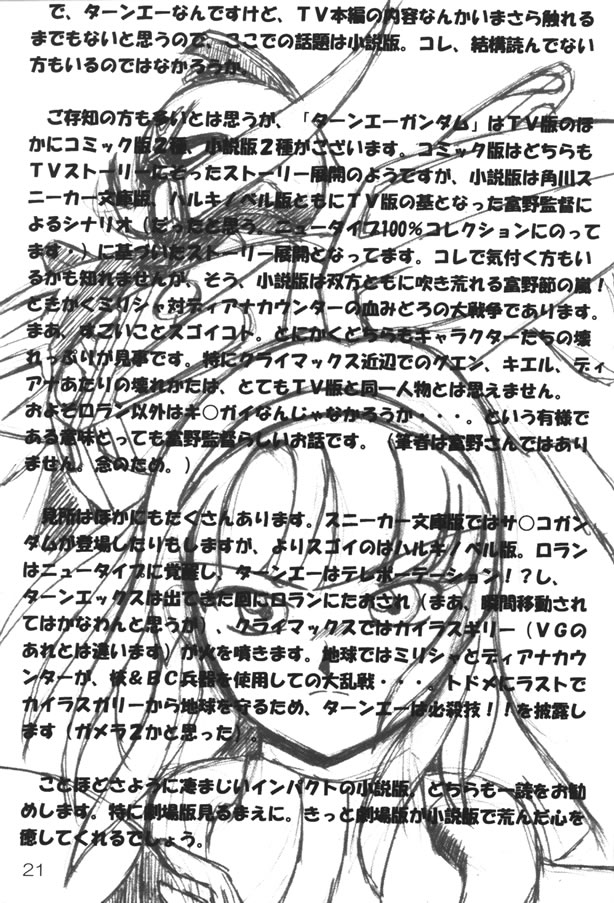 で、ターンエーなんですけど、ＴＶ本編の内容なんかいまさら触れる
までもないと思うので、ここでの話題は小説版。コレ、結構読んでない
方もいるのではなかろうか。
ご存知の方も多いとは思うが、「ターンエーガンダム」はＴＶ版のほ
かにコミック版２種、小説版２種がございます。コミック版はどちらも
ＴＶストーリーにそったストーリー展開のようですが、小説版は角川ス
ニーカー文庫版、ハルキノベル版ともにＴＶ版の基となった富野監督に
よるシナリオ（だったと思う、ニュータイプ100％コレクションにのって
ます）に基づいたストーリー展開となってます。コレで気付く方もい
るかも知れませんが、そう、小説版は双方ともに吹き荒れる富野節の嵐！
ときかくミリシャ対ディアナカウンターの血みどろの大戦争であります。
まあ、すごいことスゴイコト。とにかくどちらもキャラクターたちの壊
れっぷりが見事です。特にクライマックス近辺でのグエン、キエル、ディ
アナあたりの壊れかたは、とてもＴＶ版と同一人物とは思えません。
およそロラン以外はキ○ガイなんじゃなかろうか・・・。という有様で
ある意味とっても富野監督らしいお話です。（筆者は富野さんではあり
ません。念のため。）
見所はほかにもたくさんあります。スニーカー文庫版ではサ○コガン
ダムが登場したりもしますが、よりスゴイのはハルキノベル版。ロラン
はニュータイプに覚醒し、ターンエーはテレポーテーション！？し、
ターンエックスは出てきた回にロランにたおされ（まあ、瞬間移動され
てはかなわんと思うが）、クライマックスではカイラスギリー（ＶＧの
あれとは違います）が火を噴きます。地球ではミリシャとディアナカウ
ンターが、核＆ＢＣ兵器を使用しての大乱戦・・・。トドメにラストで
カイラスガリーから地球を守るため、ターンエーは必殺技！！を披露し
ます（ガメラ２かと思った）。
ことほどさように凄まじいインパクトの小説版、どちらも一読をお勧
めします。特に劇場版見るまえに。きっと劇場版が小説版で荒んだ心を
癒してくれるでしょう。
21